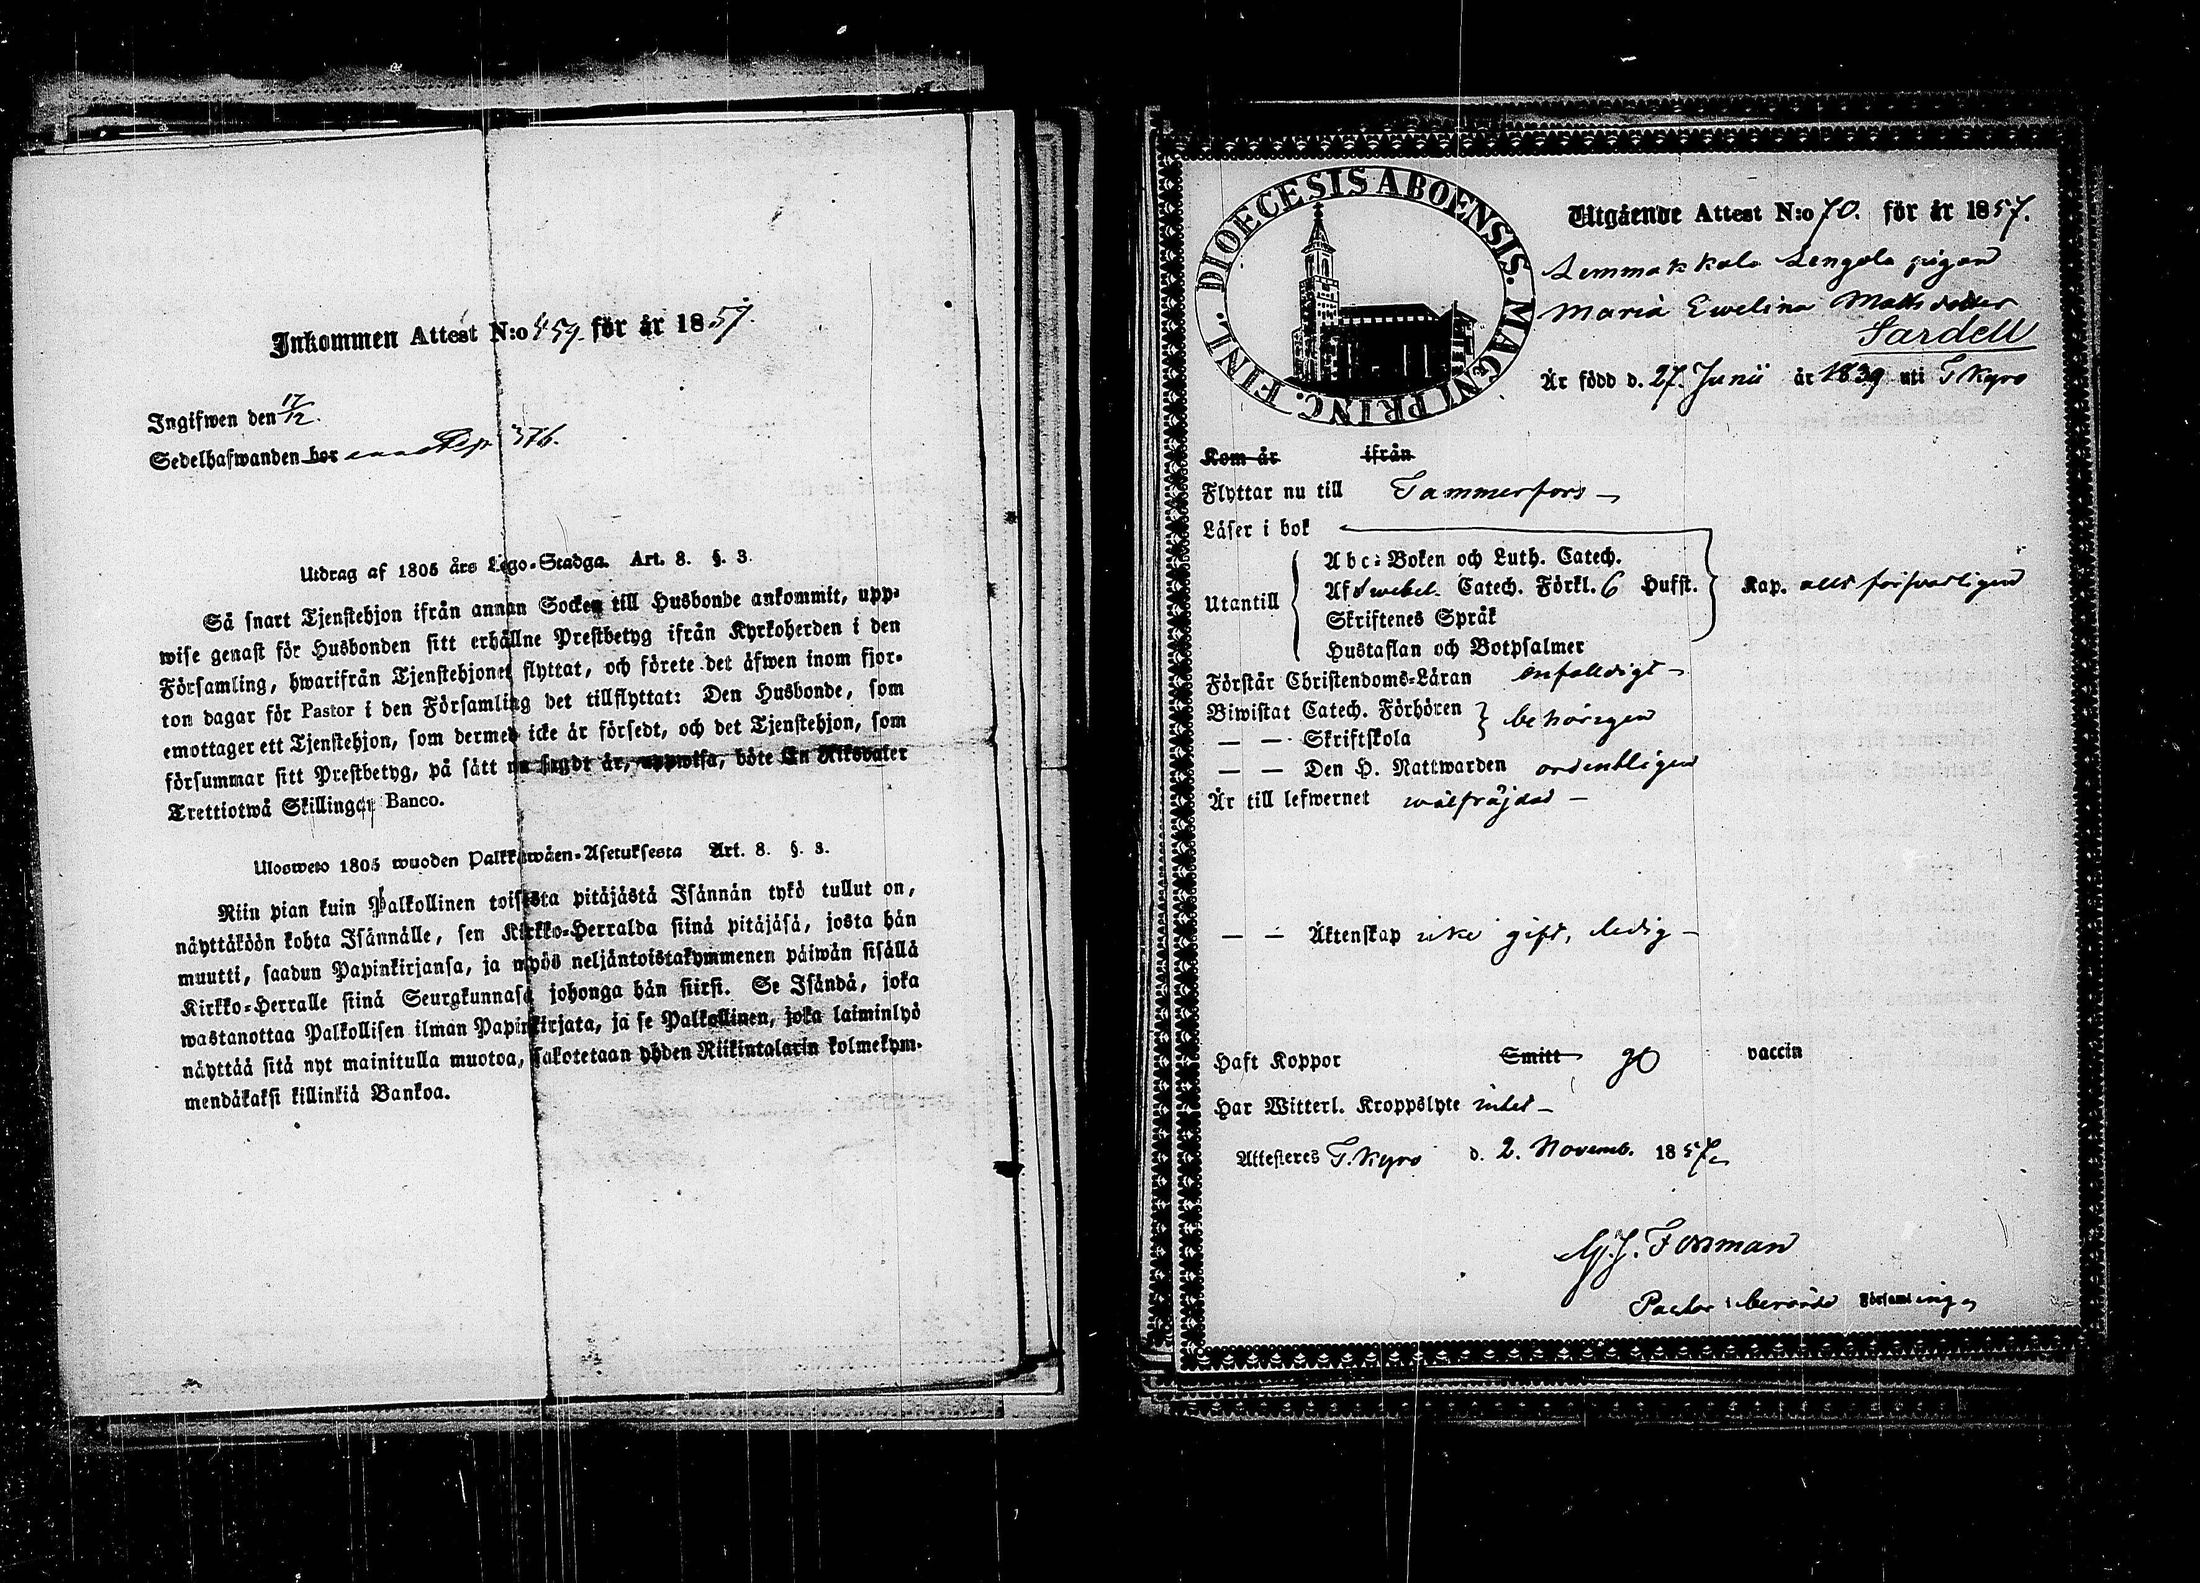 Inkommen Attest N:o 459. för år 1857.
Ingifwen den 17/12.
Sedelhafwanden bor 376.
Utdrag af 1805 års Lego-Stadga. Art. 8. §. 3.
Så snart Tjenstehjon ifrån annan Socken till Husbonde ankommit, upp-
wise genast för Husbonden sitt erhållne Prestbetyg ifrån Kyrkoherden i den
Församling, hwarifrån Tjenstehjonet flyttat, och förete det äfwen inom fjor-
ton dagar för Pastor i den Församling det tillflyttat: Den Husbonde, som
emottager ett Tjenstehjon, som dermed icke är försedt, och det Tjenstehjon, som
försummar sitt Prestbetyg, på sätt nu sagdt är, uppwisa, böte En Riksdaler
Trettiotwå Skillingar Banco.
Ulosweto 1805 wuoden Palkkawäen-Asetuksesta Art. 8. §. 3.
Niin pian kuin Palkollinen toisesta pitäjästä Isännän tykö tullut on,
näyttäköön kohta Isännälle, sen Kirkko-Herralda siinä pitäjäsä, josta hän
muutti, saadun Papinkirjansa, ja myös neljäntoistakymmenen päiwän sisällä
Kirkko-Herralle siinä Seurakunnasa johonga hän siirsi. Se Isändä, joka
wastanottaa Palkollisen ilman Papinkirjata, ja se Palkollinen, joka laiminlyö
näyttää sitä nyt mainitulla muotoa, sakotetaan yhden Riikintalarin kolmekym-
mendäkaksi killinkiä Bankoa.
DIOECESIS ABOENSIS. MAGNI PRINC. FINL.
Utgående Attest N:o 70. för år 1857.
Lemmakkala Lengola pigan
Maria Ewelina Mattsdotter
Sardell
Är född d. 27. Junii år 1839 uti T Kyro
Kom år ifrån
Flyttar nu till Tammerfors –
Läser i bok
Abc-Boken och Luth. Catech.
Utantill Af Swebel. Catech. Förkl. 6 Hufst. Kap. allt försvarligen
Skriftenes Språk
Hustaflan och Botpsalmer
Förstår Christendoms-Läran enfalldigt –
Biwistat Catech. Förhören
— — Skriftskola behörigen
— — Den H. Nattwarden ordentligen
Är till lefwernet wälfräjdad –
— — Äktenskap icke gift, ledig –
Haft Koppor Smitt go vaccin
Har Witterl. Kroppslyte intet –
Attesteres T. Kyro d. 2. Novemb. 1857.
G. J. Forsman
Pastor i berörde Församlinge